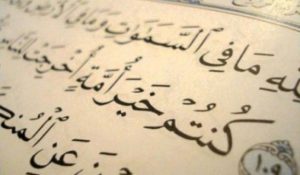 مَا فِي ٱلسَّمَٰوَٰتِ وَمَا فِي ٱلْأَرْضِ
١٠٩ كُنتُمْ خَيْرَ أُمَّةٍ أُخْرِجَتْ لِلنَّاسِ
عَنِ ٱلْمُنكَ